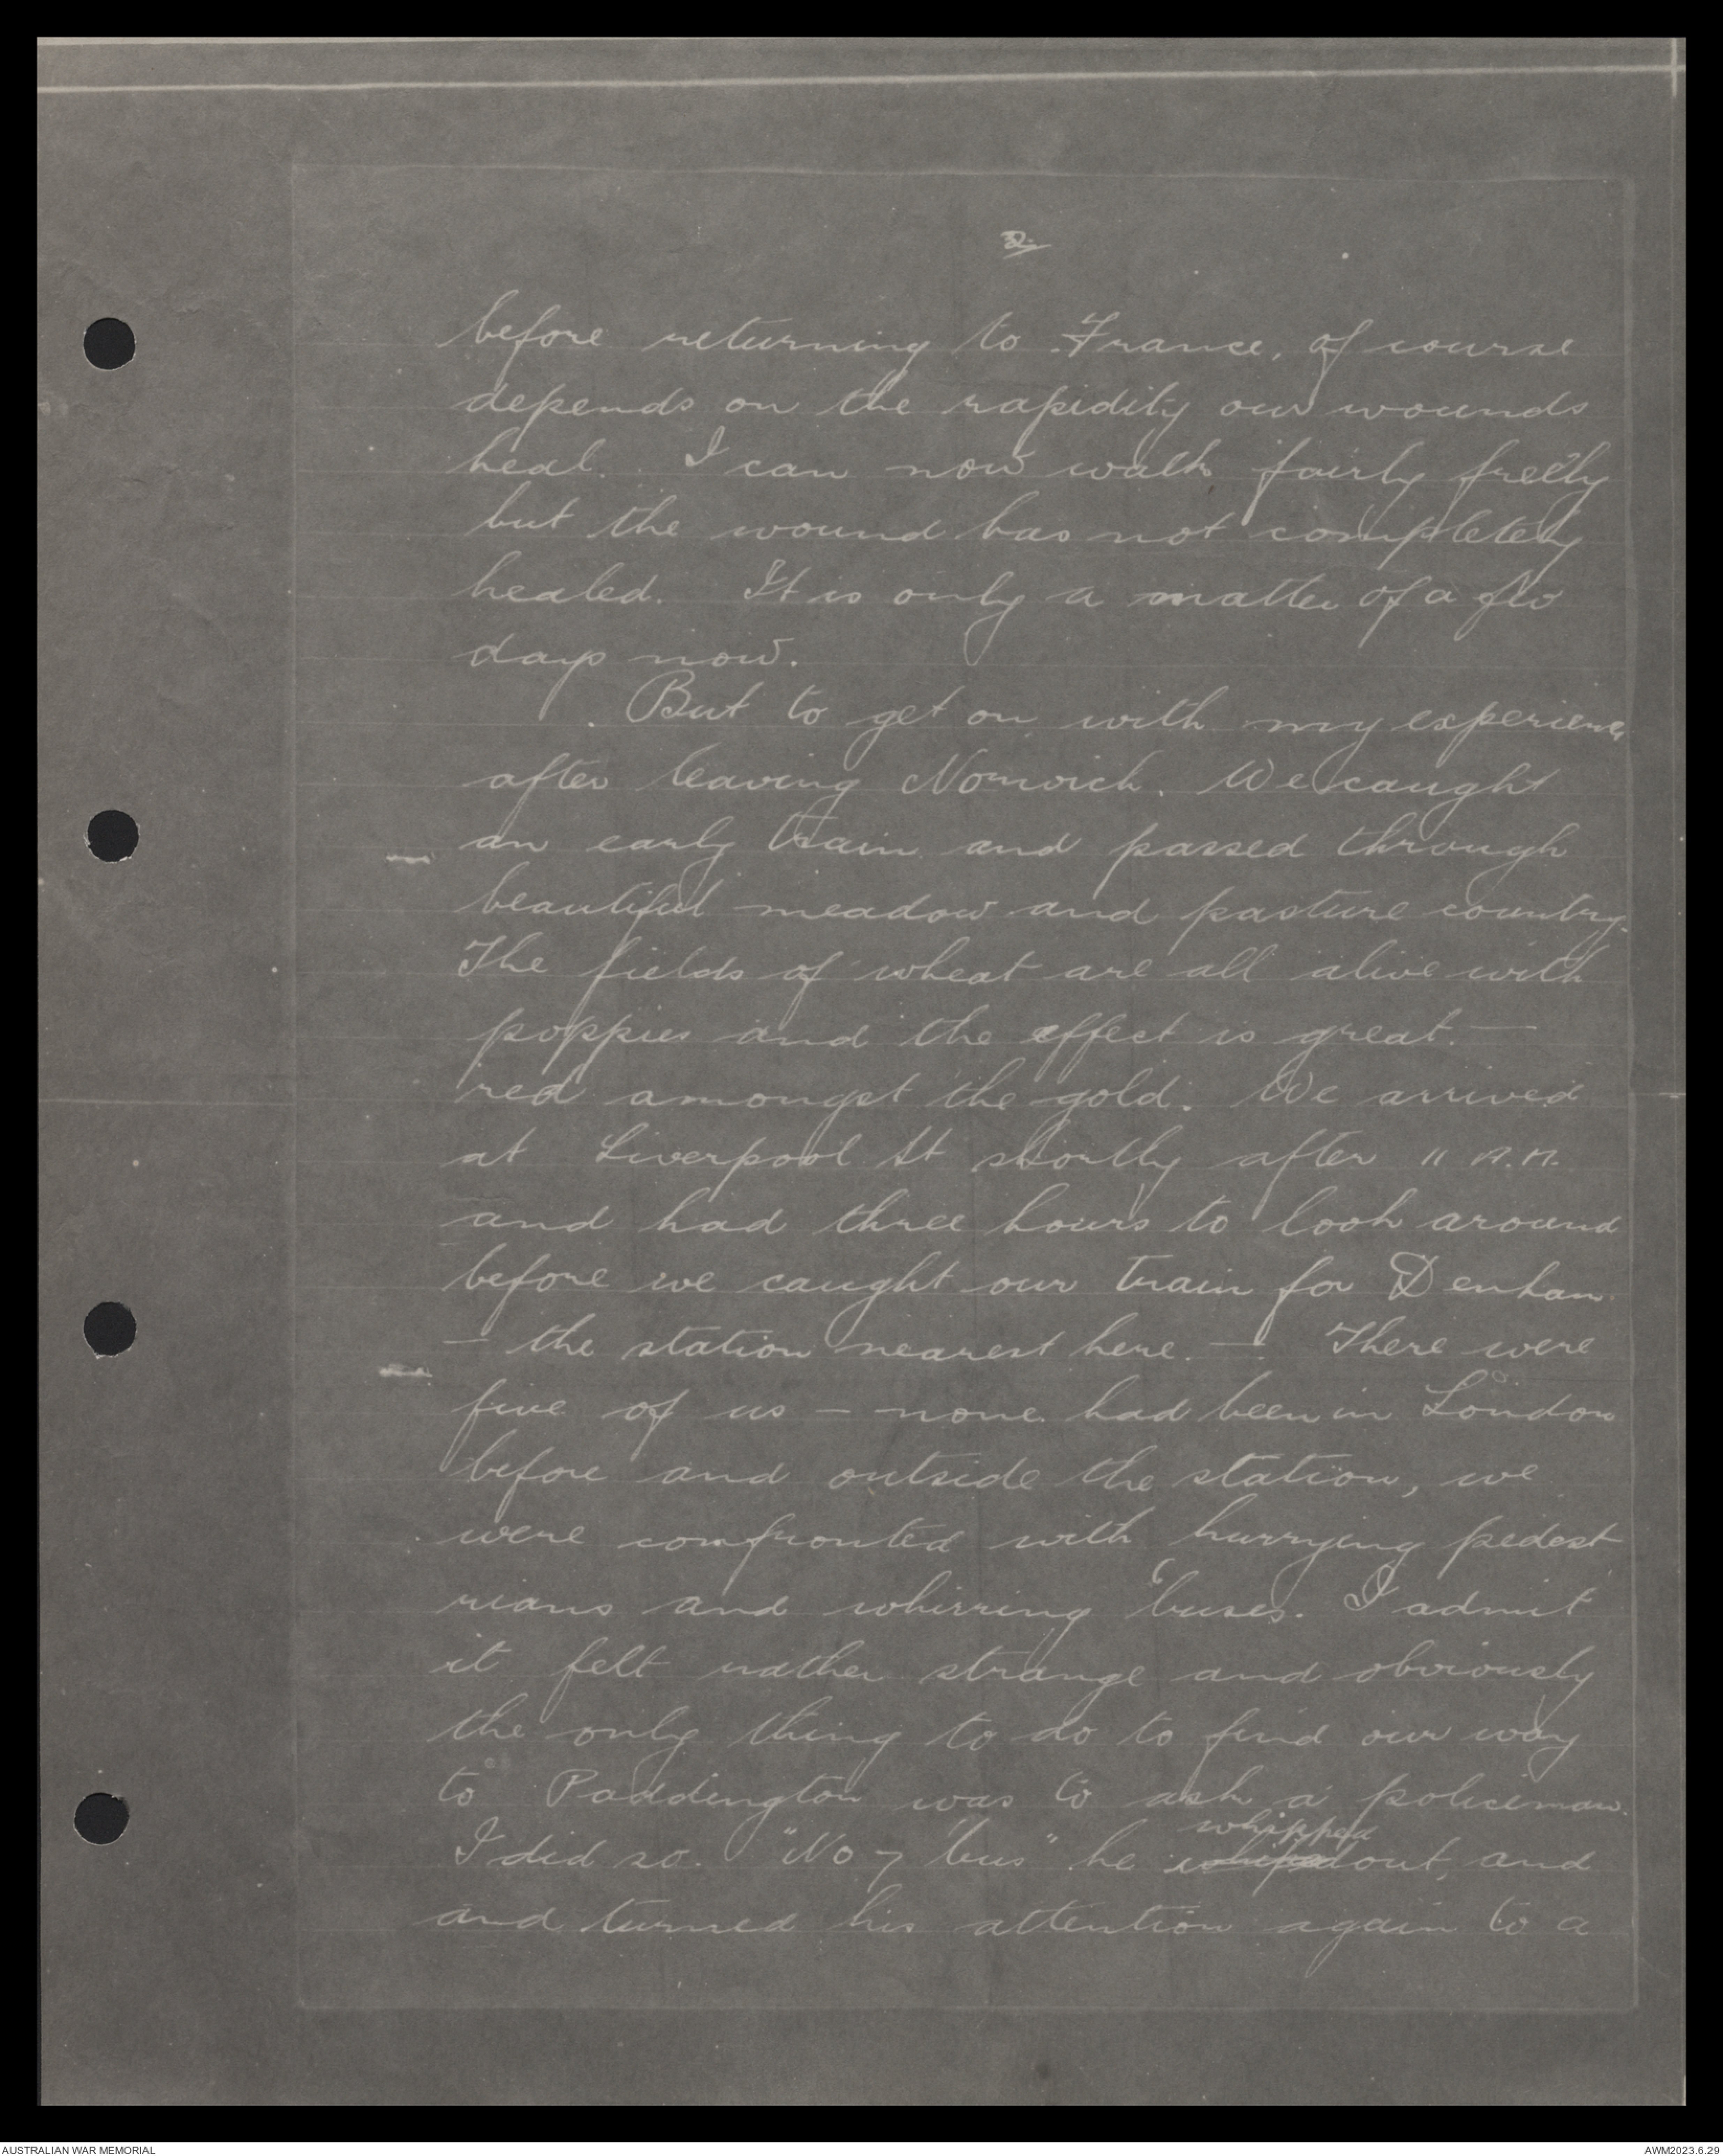 2.
before returning to France, of course
depends on the rapidity our wounds
heal. I can now walk fairly freely
but the wound has not completely
healed. It is only a matter of a few
days now.
But to get on with my experience
after leaving Norwich. We caught
an early train and passed through
beautiful meadow and pasture country.
The fields of wheat are all alive with
poppies and the effect is great. —
red amongst the gold. We arrived
at Liverpool St shortly after 11 A.M.
and had three hours to look around
before we caught our train for Denham.
— the station nearest here. — There were
five of us — none had been in London
before and outside the station, we
were confronted with hurrying pedest
rians and whirring 'buses. I admit
it felt rather strange and obviously
the only thing to do to find our way
to Paddington was to ask a policeman.
whipped
I did so. "No 7 'bus" he out, and
and turned his attention again to a
AUSTRALIAN WAR MEMORIAL
AWM2023.6.29